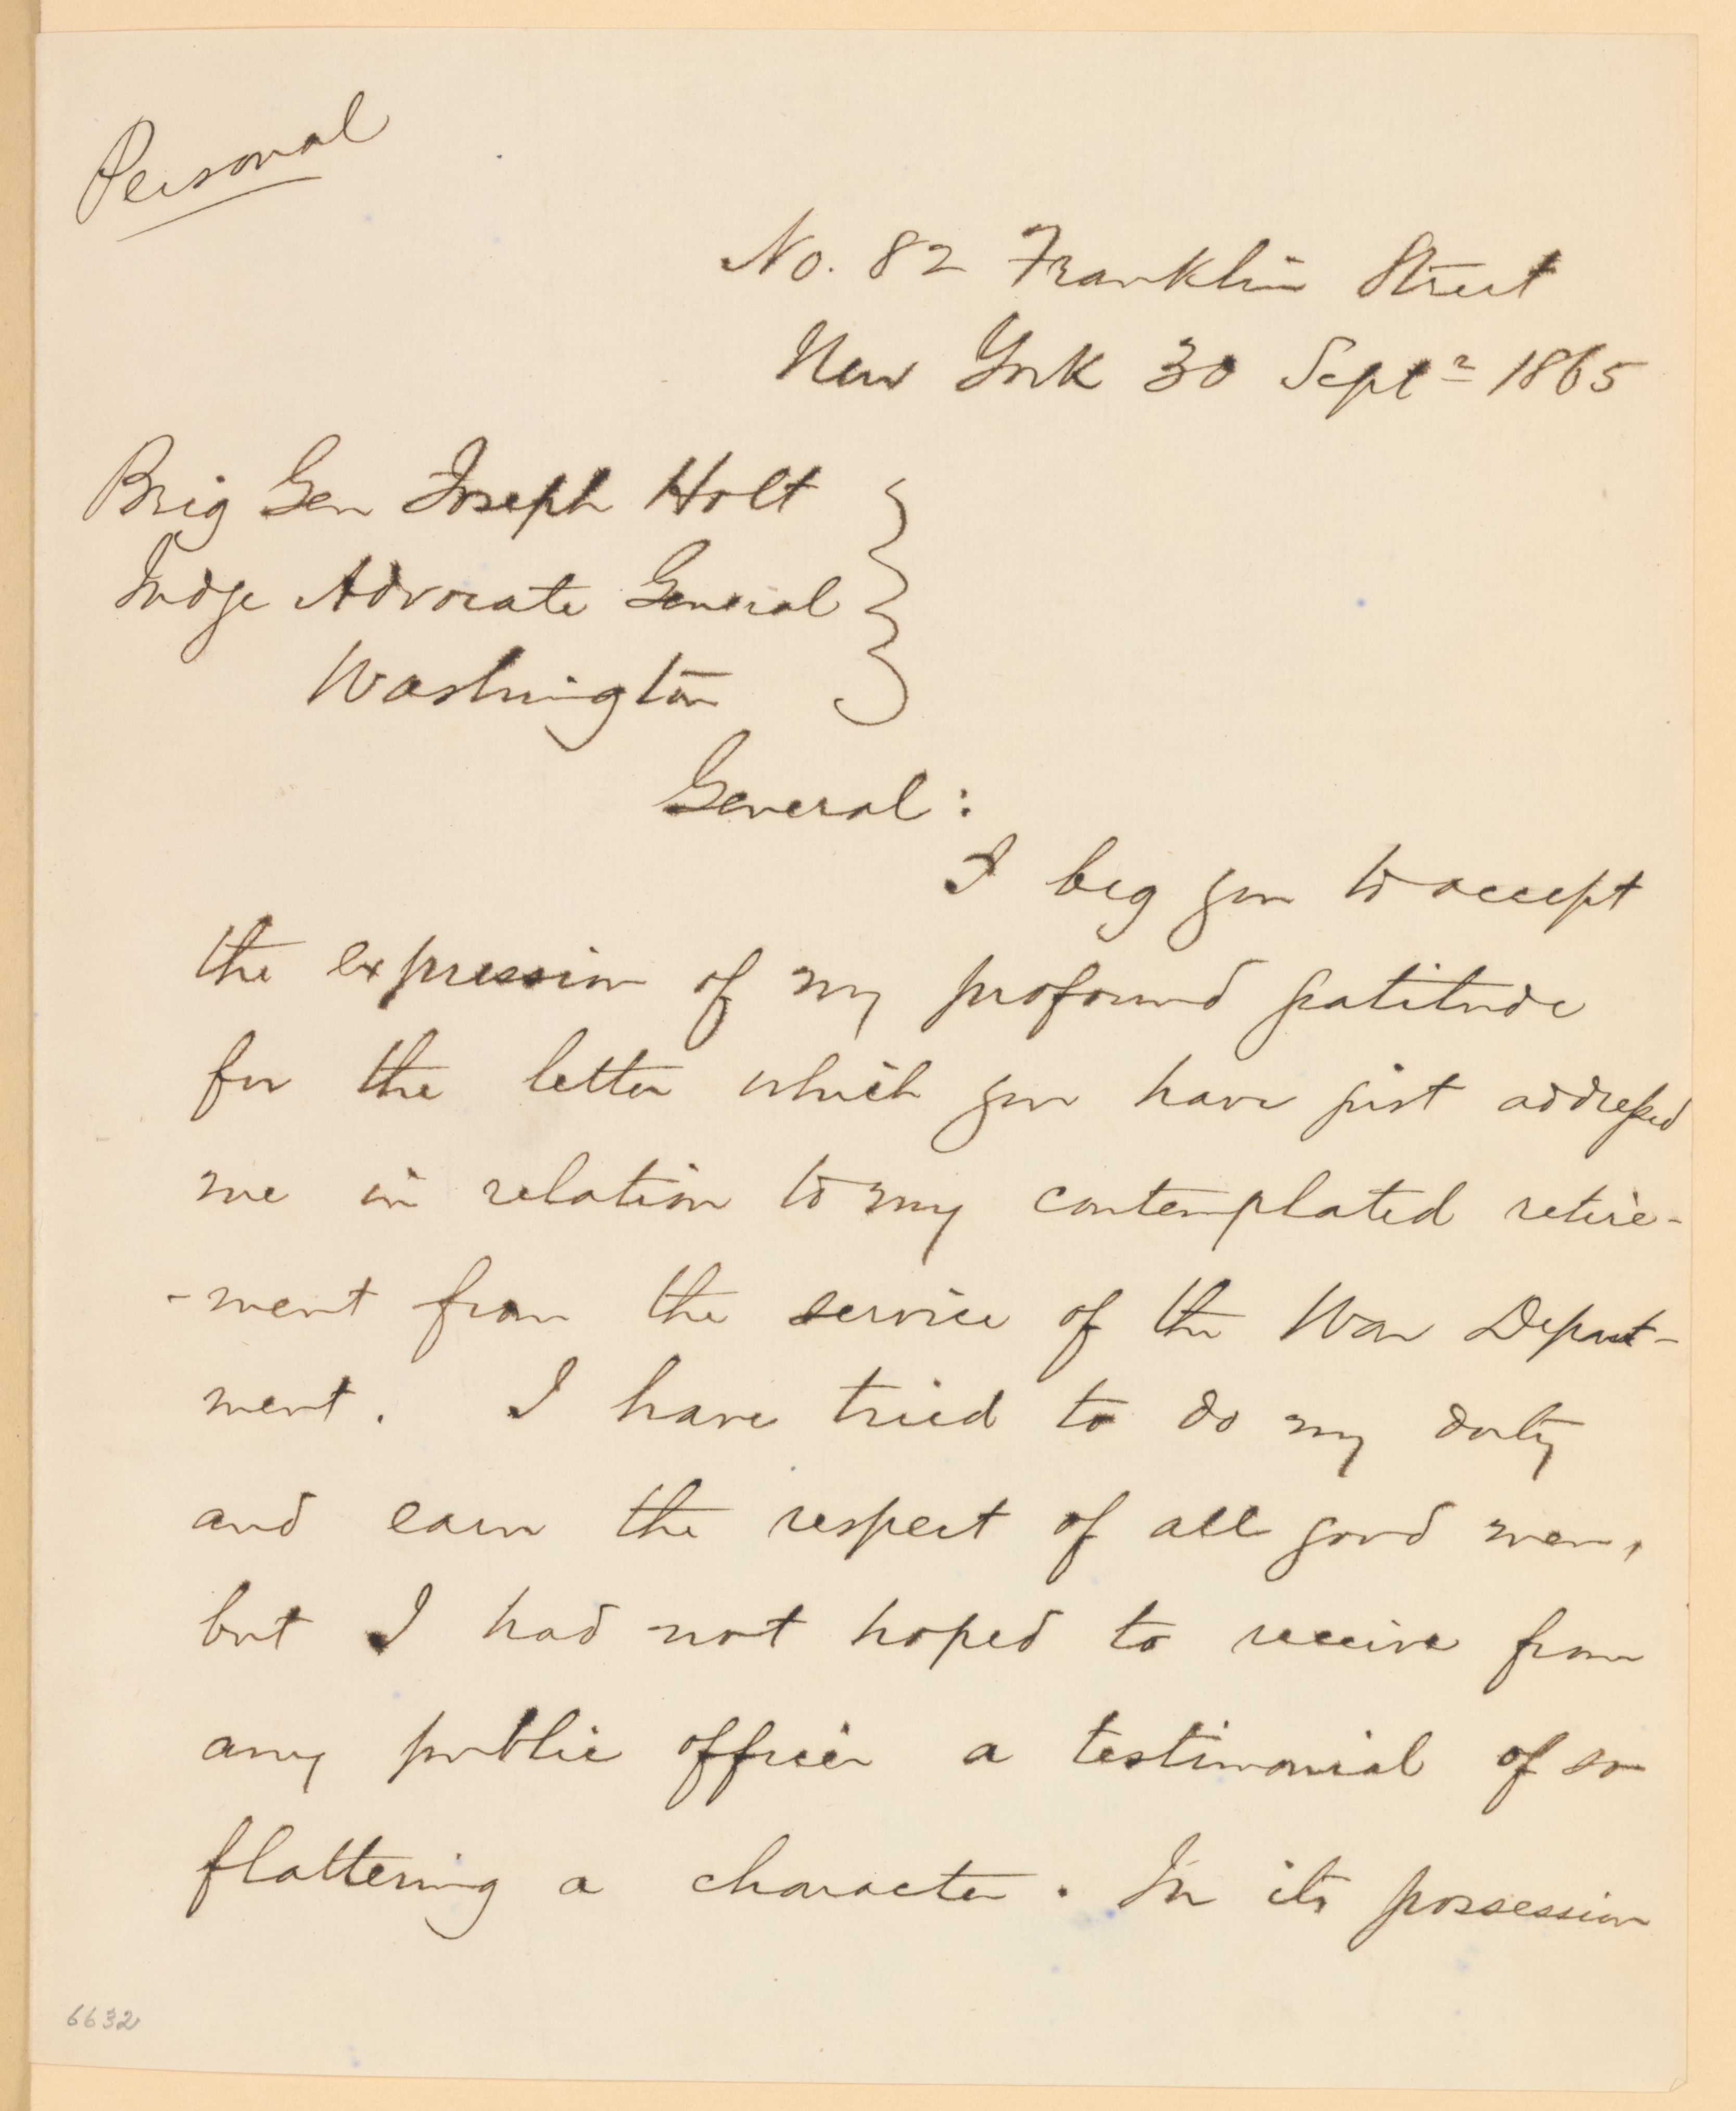 Personal
No. 82 Franklin Street
New York 30 Septr 1865
Brig Gen Joseph Holt
Judge Advocate General
Washington
General:
I beg you to accept
the expression of my profound gratitude
for the letter which you have just addressed
me in relation to my contemplated retire-
-ment from the service of the War Depart-
ment. I have tried to do my duty
and earn the respect of all good men,
but I had not hoped to receive from
any public officer a testimonial of so
flattering a character. In its possession
6632